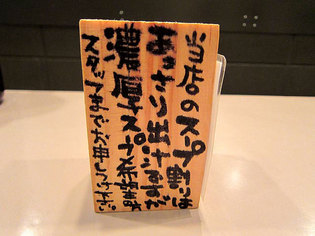 当店のスープ割りは
あっさり出汁ですが
濃厚スープ希望の方
スタッフまでお申しつけ下さい